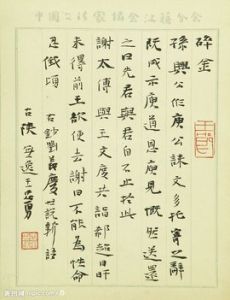 碎金
孫興公作庾公誄文多托寄之辭
既成示庾道恩庾見慨然送還
之曰先君與君自不止於此
謝太傅與王文度共詣郗超日旰
未得前王欲便去謝曰不能為性命
忍俄頃
右鈔劉義慶世說新語